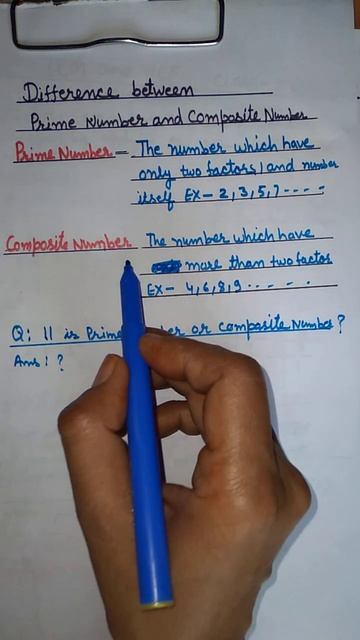 Difference between
Prime Number and Composite Number
Prime Number - The number which have
only two factors 1 and number
itself EX- 2,3,5,7 - - - -
Composite Number The number which have
more than two factor
EX- 4,6,8,9 - - - - -
Q: 11 is Prime or Composite Number?
Ans: ?